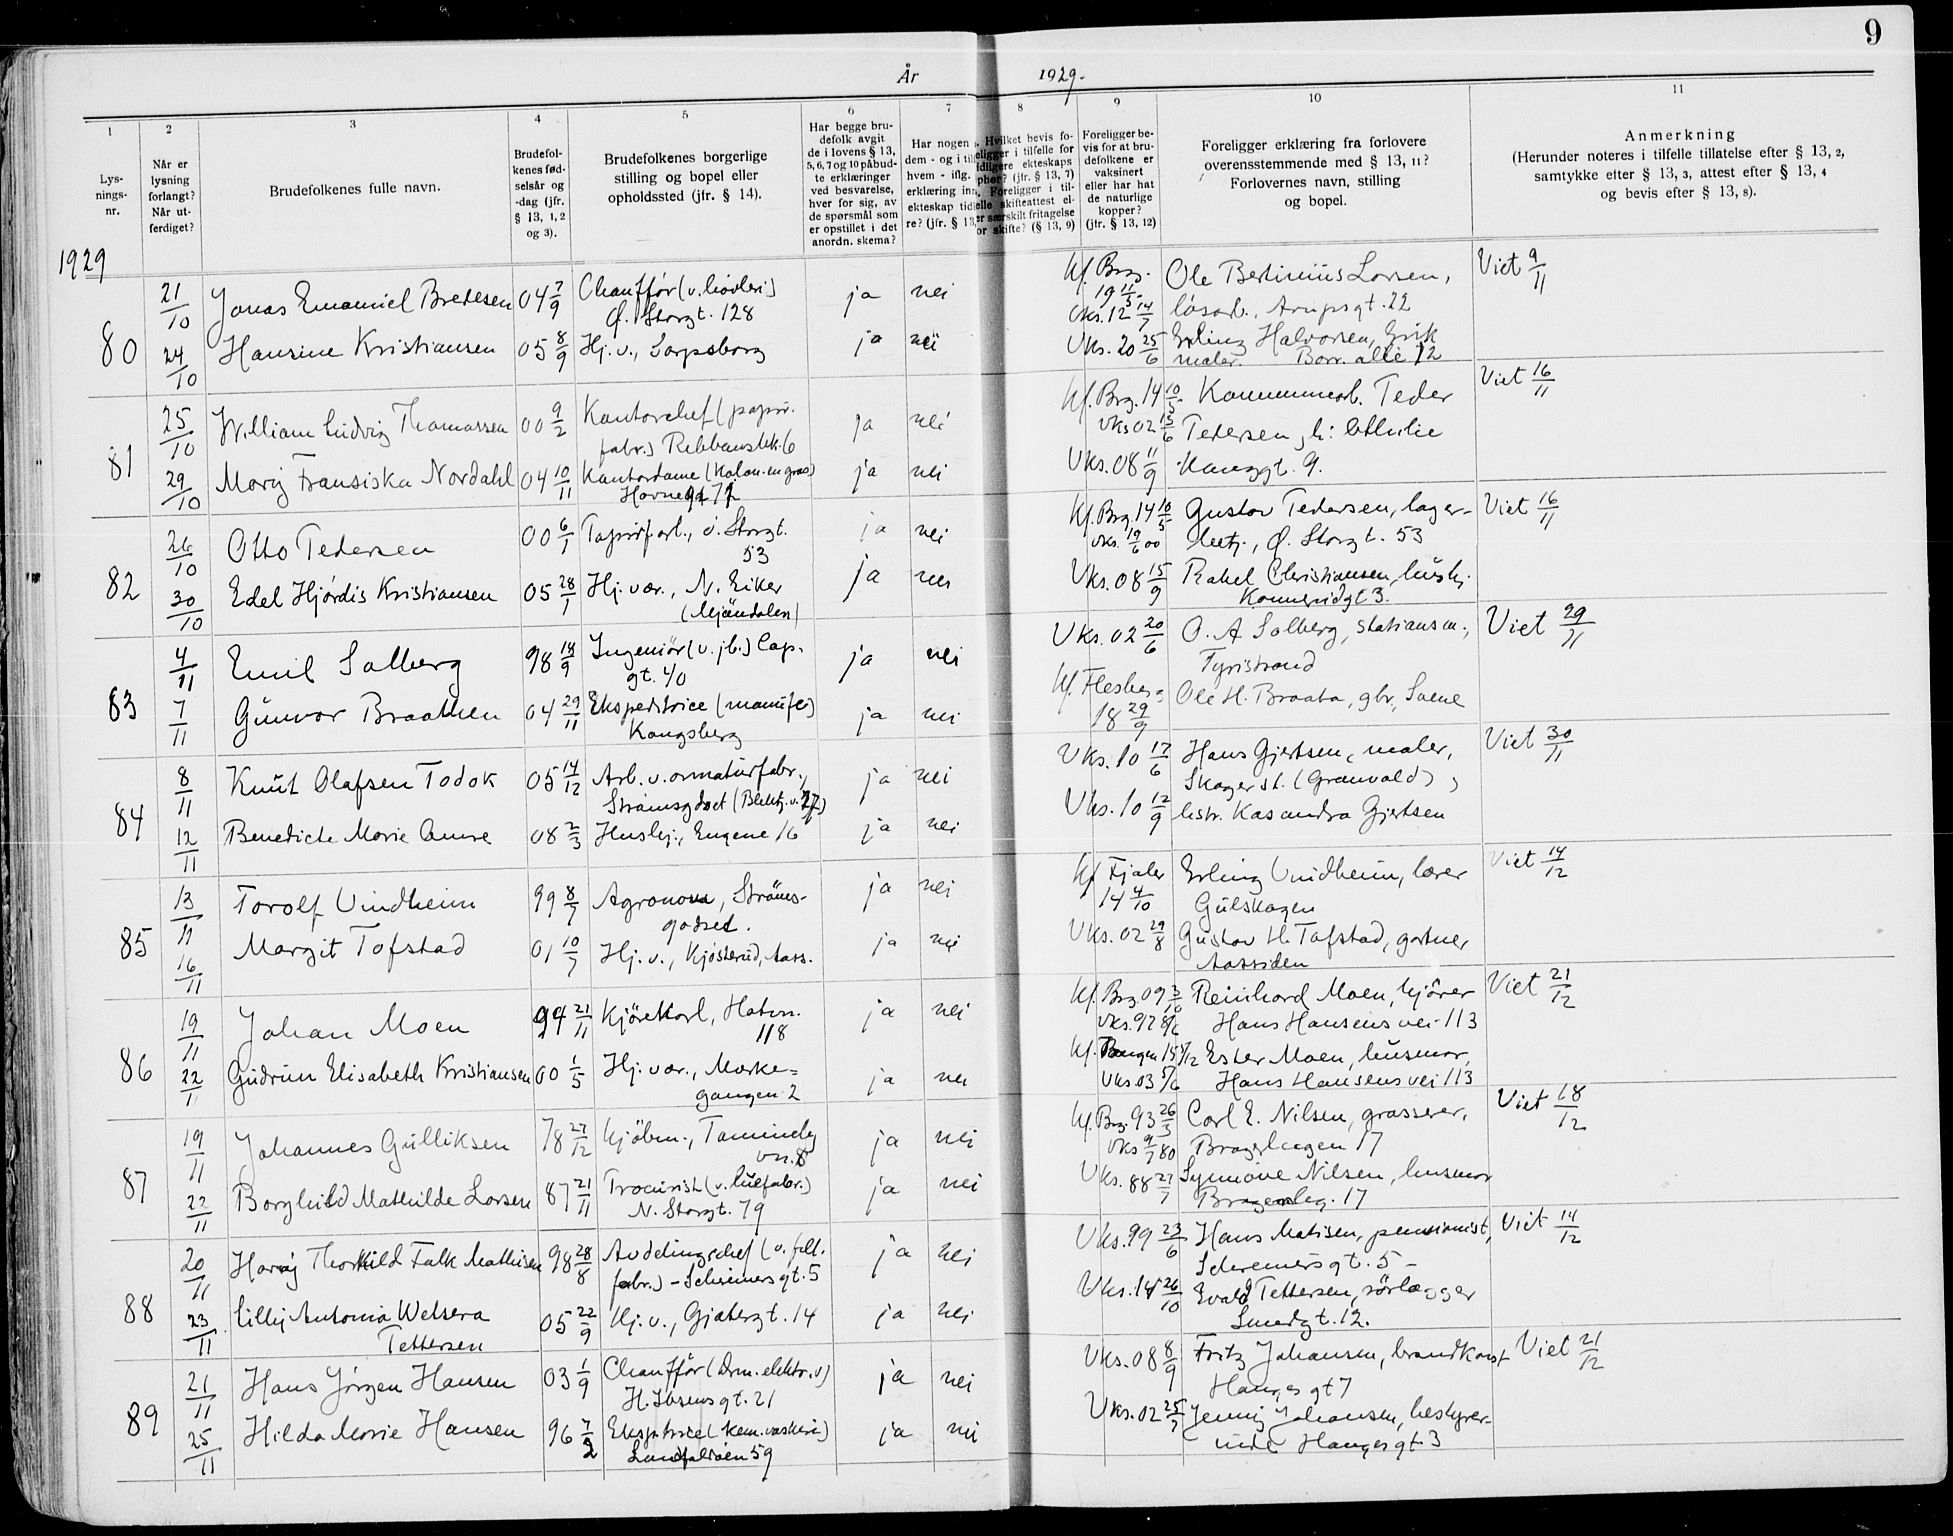 9
År 1929.
1 2 3 4 5 6 7 8 9 10 11
Lys-
nings-
nr.
Når er
lysning
forlangt?
Når ut-
ferdiget?
Brudefolkenes fulle navn.
Brudefol-
kenes fød-
selsår og
-dag (jfr.
§ 13, 1, 2
og 3).
Brudefolkenes borgerlige
stilling og bopel eller
opholdssted (jfr. § 14).
Har begge bru-
defolk avgit
de i lovens § 13,
5, 6, 7 og 10 påbud-
te erklæringer
ved besvarelse,
hver for sig, av
de spørsmål som
er opstillet i det
anordn. skema?
Har nogen
dem - og i til
hvem - iflg.
erklæring inn
ekteskap tid
re? (jfr. § 13,
Hvilket bevis fo-
religger i tilfelle for
ekteskaps
(jfr. § 13, 7)
Foreligger i til-
skifteattest el-
særskilt fritagelse
for skifte? (§ 13, 9)
Foreligger be-
vis for at bru-
defolkene er
vaksinert
eller har hat
de naturlige
kopper?
(jfr. § 13, 12)
Foreligger erklæring fra forlovere
overensstemmende med § 13, 11?
Forlovernes navn, stilling
og bopel.
Anmerkning
(Herunder noteres i tilfelle tillatelse efter § 13, 2,
samtykke efter § 13, 3, attest efter § 13, 4
og bevis efter § 13, 8).
1929
80 21/10 Jonas Emanuel Bredesen 04 7/9 Chauffør (v. høvleri) ja nei Kf. Brg. 19 11/5 Ole Bertinius Larsen, Viet 9/11
Ø. Storgt. 128 Vks. 12 14/7 løsarb., Arupsgt. 22
24/10 Hansine Kristiansen 05 8/9 Hj. v., Sarpsborg ja nei Vks. 20 25/6 Erling Halvorsen,
maler. Borr. allé 12
81 25/10 William Ludvig Thomassen 00 9/2 Kontorchef (papir. ja nei Kf. Brg. 14 10/5 Kommunearb. Peder Viet 16/11
fabr.) Rebbansbk. 6 Vks 02 13/6 Pedersen,
29/10 Mary Fransiska Nordahl 04 10/11 Kontordame (Kolon. en gros) ja nei Vks. 08 11/9 Haugsgt. 9.
Havnegt 71
82 26/10 Otto Pedersen 00 6/1 Papirfarb., ø. Storgt. ja nei Kf. Brg. 14 10/5 Gustav Pedersen, lager- Viet 16/11
53 vks. 19/6 00 betj., Ø. Storgt. 53
30/10 Edel Hjørdis Kristiansen 05 28/1 Hj. vær., N. Eiker ja nei Vks. 08 15/9 Rakel Christiansen, hushj.
(Mjøndalen) Konnerudgt 3.
83 4/11 Emil Solberg 98 18/9 Ingeniør (v. jb.) Cap. ja nei Vks. 02 20/6 O. A Solberg, stationsm., Viet 29/11
gt. 40 Tyristrand
7/11 Gunvor Braathen 04 29/11 Ekspeditrice (manufr) ja nei Kf. Flesberg Ole H. Braata, gbr, Svene
Kongsberg 18 29/9
84 8/11 Knut Olafsen Todok 05 14/12 Arb. v. armaturfabr., ja nei Vks. 10 17/6 Hans Gjertsen, maler, Viet 30/11
Strømsgodset Skager st. (Grønvold),
12/11 Benedicte Marie Aamre 08 2/3 Hushj., Eugene 16 ja nei Vks. 10 12/9 hstr. Kasandra Gjertsen
85 13/11 Torolf Vindheim 99 8/7 Agronom, Strøms- ja nei Kf Fjaler Erling Vindheim, lærer Viet 14/12
godset. 14 4/10 Gulskogen
16/11 Margit Tofstad 01 10/7 Hj. v., Kjøsterud, Aass. ja nei Vks. 02 29/8 Gustav H. Tofstad, gartner
Aassiden
86 19/11 Johan Moen 94 21/11 Kjørekarl, Hotvn. ja nei Kf. Brg. 09 3/10 Reinhard Moen, kjører Viet 21/12
118 Vks. 97 Hans Hansens vei 113
22/11 Gudrun Elisabeth Kristiansen 00 1/5 Hj. vær., Marke- ja nei Kf. Tangen 15 Ester Moen, husmor,
gangen 2 Vks 03 Hans Hansens vei 113
87 19/11 Johannes Gulliksen 78 27/12 kjøbm., Tomineby ja nei Kf. Brg. 93 26/3 Carl E. Nilsen, grosserer, Viet 18/12
vn. 8 Vks 9/7 80 Bragerhagen 17
22/11 Borghild Mathilde Larsen 87 21/11 Procurist (v. luefabr.) ja nei Vks. 88 27/7 Synnøve Nilsen, husmor
N. Storgt. 79 Bragerhg. 17
88 20/11 Harry Thorkild Falk Mathisen 98 28/8 Avdelingschef (v. filt. ja nei Vks. 99 23/6 Hans Matisen, pensionist, Viet 14/12
fabr.) - Schreiners gt. 5 Schreiners gt. 5 -
23/11 Lilly Antonia Welsera 05 22/9 Hj. v., Gjætergt. 14 ja nei Vks. 14 26/10 Evald Pettersen, rørlægger
Pettersen Smedgt. 12.
89 21/11 Hans Jørgen Hansen 03 1/9 Chauffør (Drm. elektr. v) ja nei Vks. 08 8/9 Fritz Johansen, brandkonst Viet 21/12
H. Ibsens gt. 21 Hauges gt 7
25/11 Hilda Marie Hansen 96 7/2 Eksp.trice (kem. vaskeri) ja nei Vks. 02 25/7 Jenny Johansen, bestyrer-
59 inde Hauges gt. 3